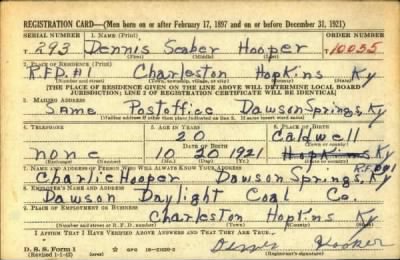 REGISTRATION CARD—(Men born on or after February 17, 1897 and on or before December 31, 1921)
SERIAL NUMBER 1. NAME (Print) ORDER NUMBER
T 293 Dennis Seaber Hooper T10055
(First) (Middle) (Last)
2. PLACE OF RESIDENCE (Print)
R.F.D.#1 Charleston Hopkins Ky
(Number and street) (Town, township, village, or city) (County) (State)
[THE PLACE OF RESIDENCE GIVEN ON THE LINE ABOVE WILL DETERMINE LOCAL BOARD
JURISDICTION; LINE 2 OF REGISTRATION CERTIFICATE WILL BE IDENTICAL]
3. MAILING ADDRESS
Same Postoffice Dawson Springs, Ky
[Mailing address if other than place indicated on line 2. If same insert word same]
4. TELEPHONE 5. AGE IN YEARS 6. PLACE OF BIRTH
20 Caldwell
DATE OF BIRTH
none 10 20 1921 Hopkins Ky
(Exchange) (Number) (Mo.) (Day) (Yr.) (State or country)
7. NAME AND ADDRESS OF PERSON WHO WILL ALWAYS KNOW YOUR ADDRESS R.F.D#1
Charlie Hooper Dawson Springs, Ky
8. EMPLOYER'S NAME AND ADDRESS
Dawson Daylight Coal Co.
9. PLACE OF EMPLOYMENT OR BUSINESS
Charleston Hopkins Ky
(Number and street or R. F. D. number) (Town) (County) (State)
I AFFIRM THAT I HAVE VERIFIED ABOVE ANSWERS AND THAT THEY ARE TRUE.
D. S. S. Form 1
(Revised 1-1-42) (over) Dennis Hooper
(Registrant's signature)